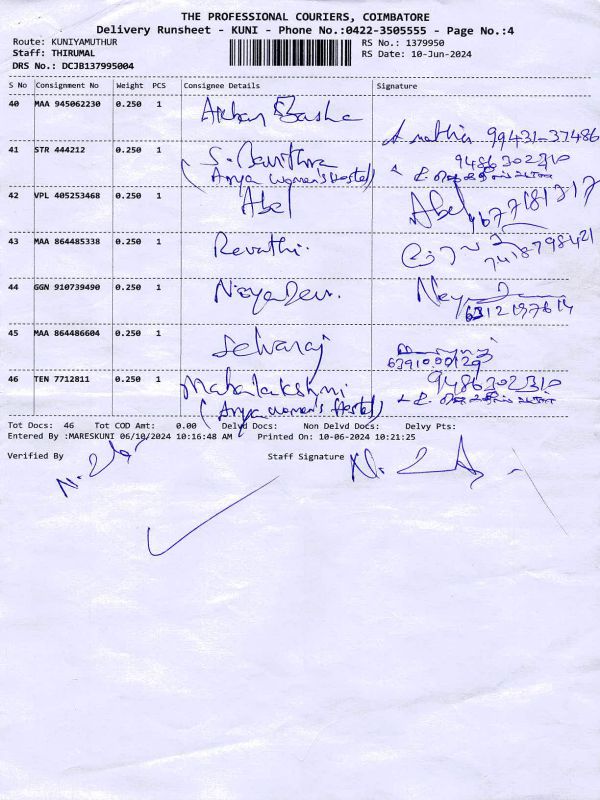 THE PROFESSIONAL COURIERS, COIMBATORE
Delivery Runsheet - KUNI - Phone No.:0422-3505555 - Page No.:4
Route: KUNIYAMUTHUR RS No.: 1379950
Staff: THIRUMAL RS Date: 10-Jun-2024
DRS No.: DCJB137995004
S No Consignment No Weight PCS Consignee Details Signature
40 MAA 945062230 0.250 1 Basha
99431-37486
41 STR 444212 0.250 1 S. 9486302310
(Arya women's Hostel)
42 VPL 405253468 0.250 1 Abel Abel
43 MAA 864485338 0.250 1 Revathi.
7418798421
44 GGN 910739490 0.250 1 NeyaDevi.
45 MAA 864486604 0.250 1 Selvaraj
46 TEN 7712811 0.250 1 Mahalakshmi 9486302310
(Arya women's Hostel)
Tot Docs: 46 Tot COD Amt: 0.00 Delvd Docs: Non Delvd Docs: Delvy Pts:
Entered By :MARESKUNI 06/10/2024 10:16:48 AM Printed On: 10-06-2024 10:21:25
Verified By Staff Signature